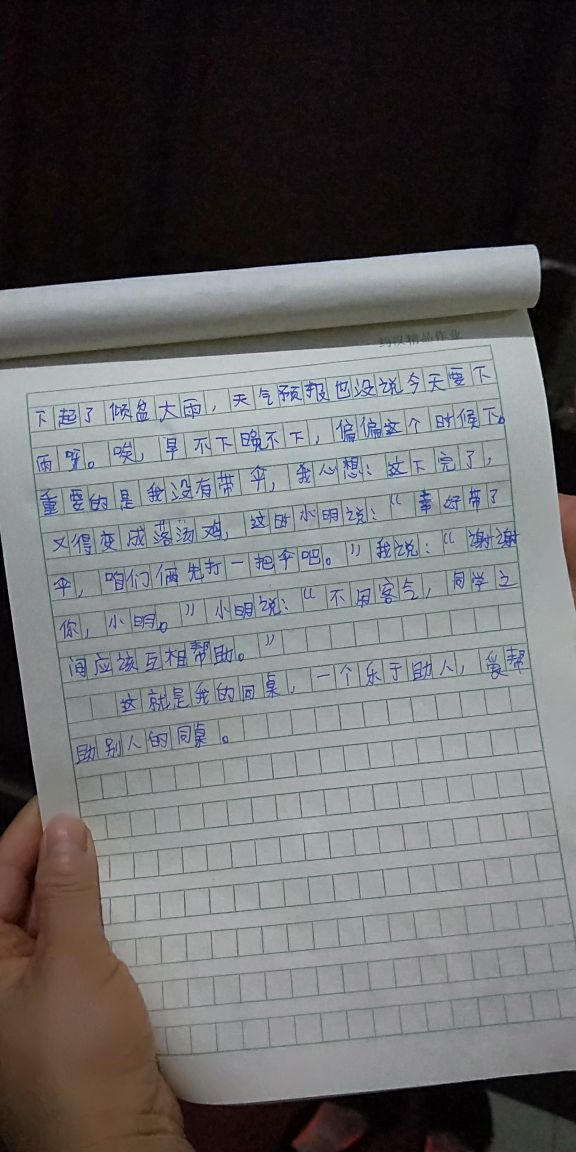 约汉精品作业
下起了倾盆大雨，天气预报也没说今天要下
雨呀。唉，早不下晚不下，偏偏这个时候下。
重要的是我没有带伞，我心想：这下完了，
又得变成落汤鸡，这时小明说：“幸好带了
伞，咱们俩先打一把伞吧。”我说：“谢谢
你，小明。”小明说：“不用客气，同学之
间应该互相帮助。”
这就是我的同桌，一个乐于助人，爱帮
助别人的同桌。